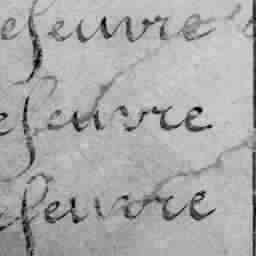 efeuvre
efeuvre
efeuvre